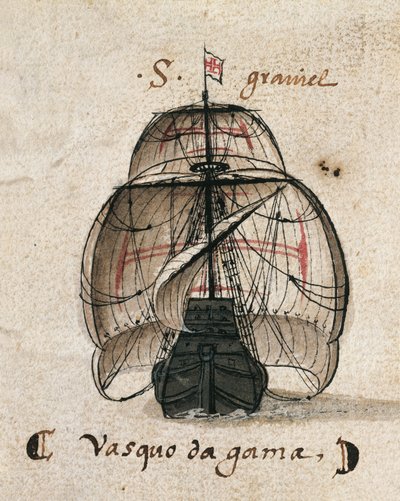 · S · graviel
Vasquo da gama,